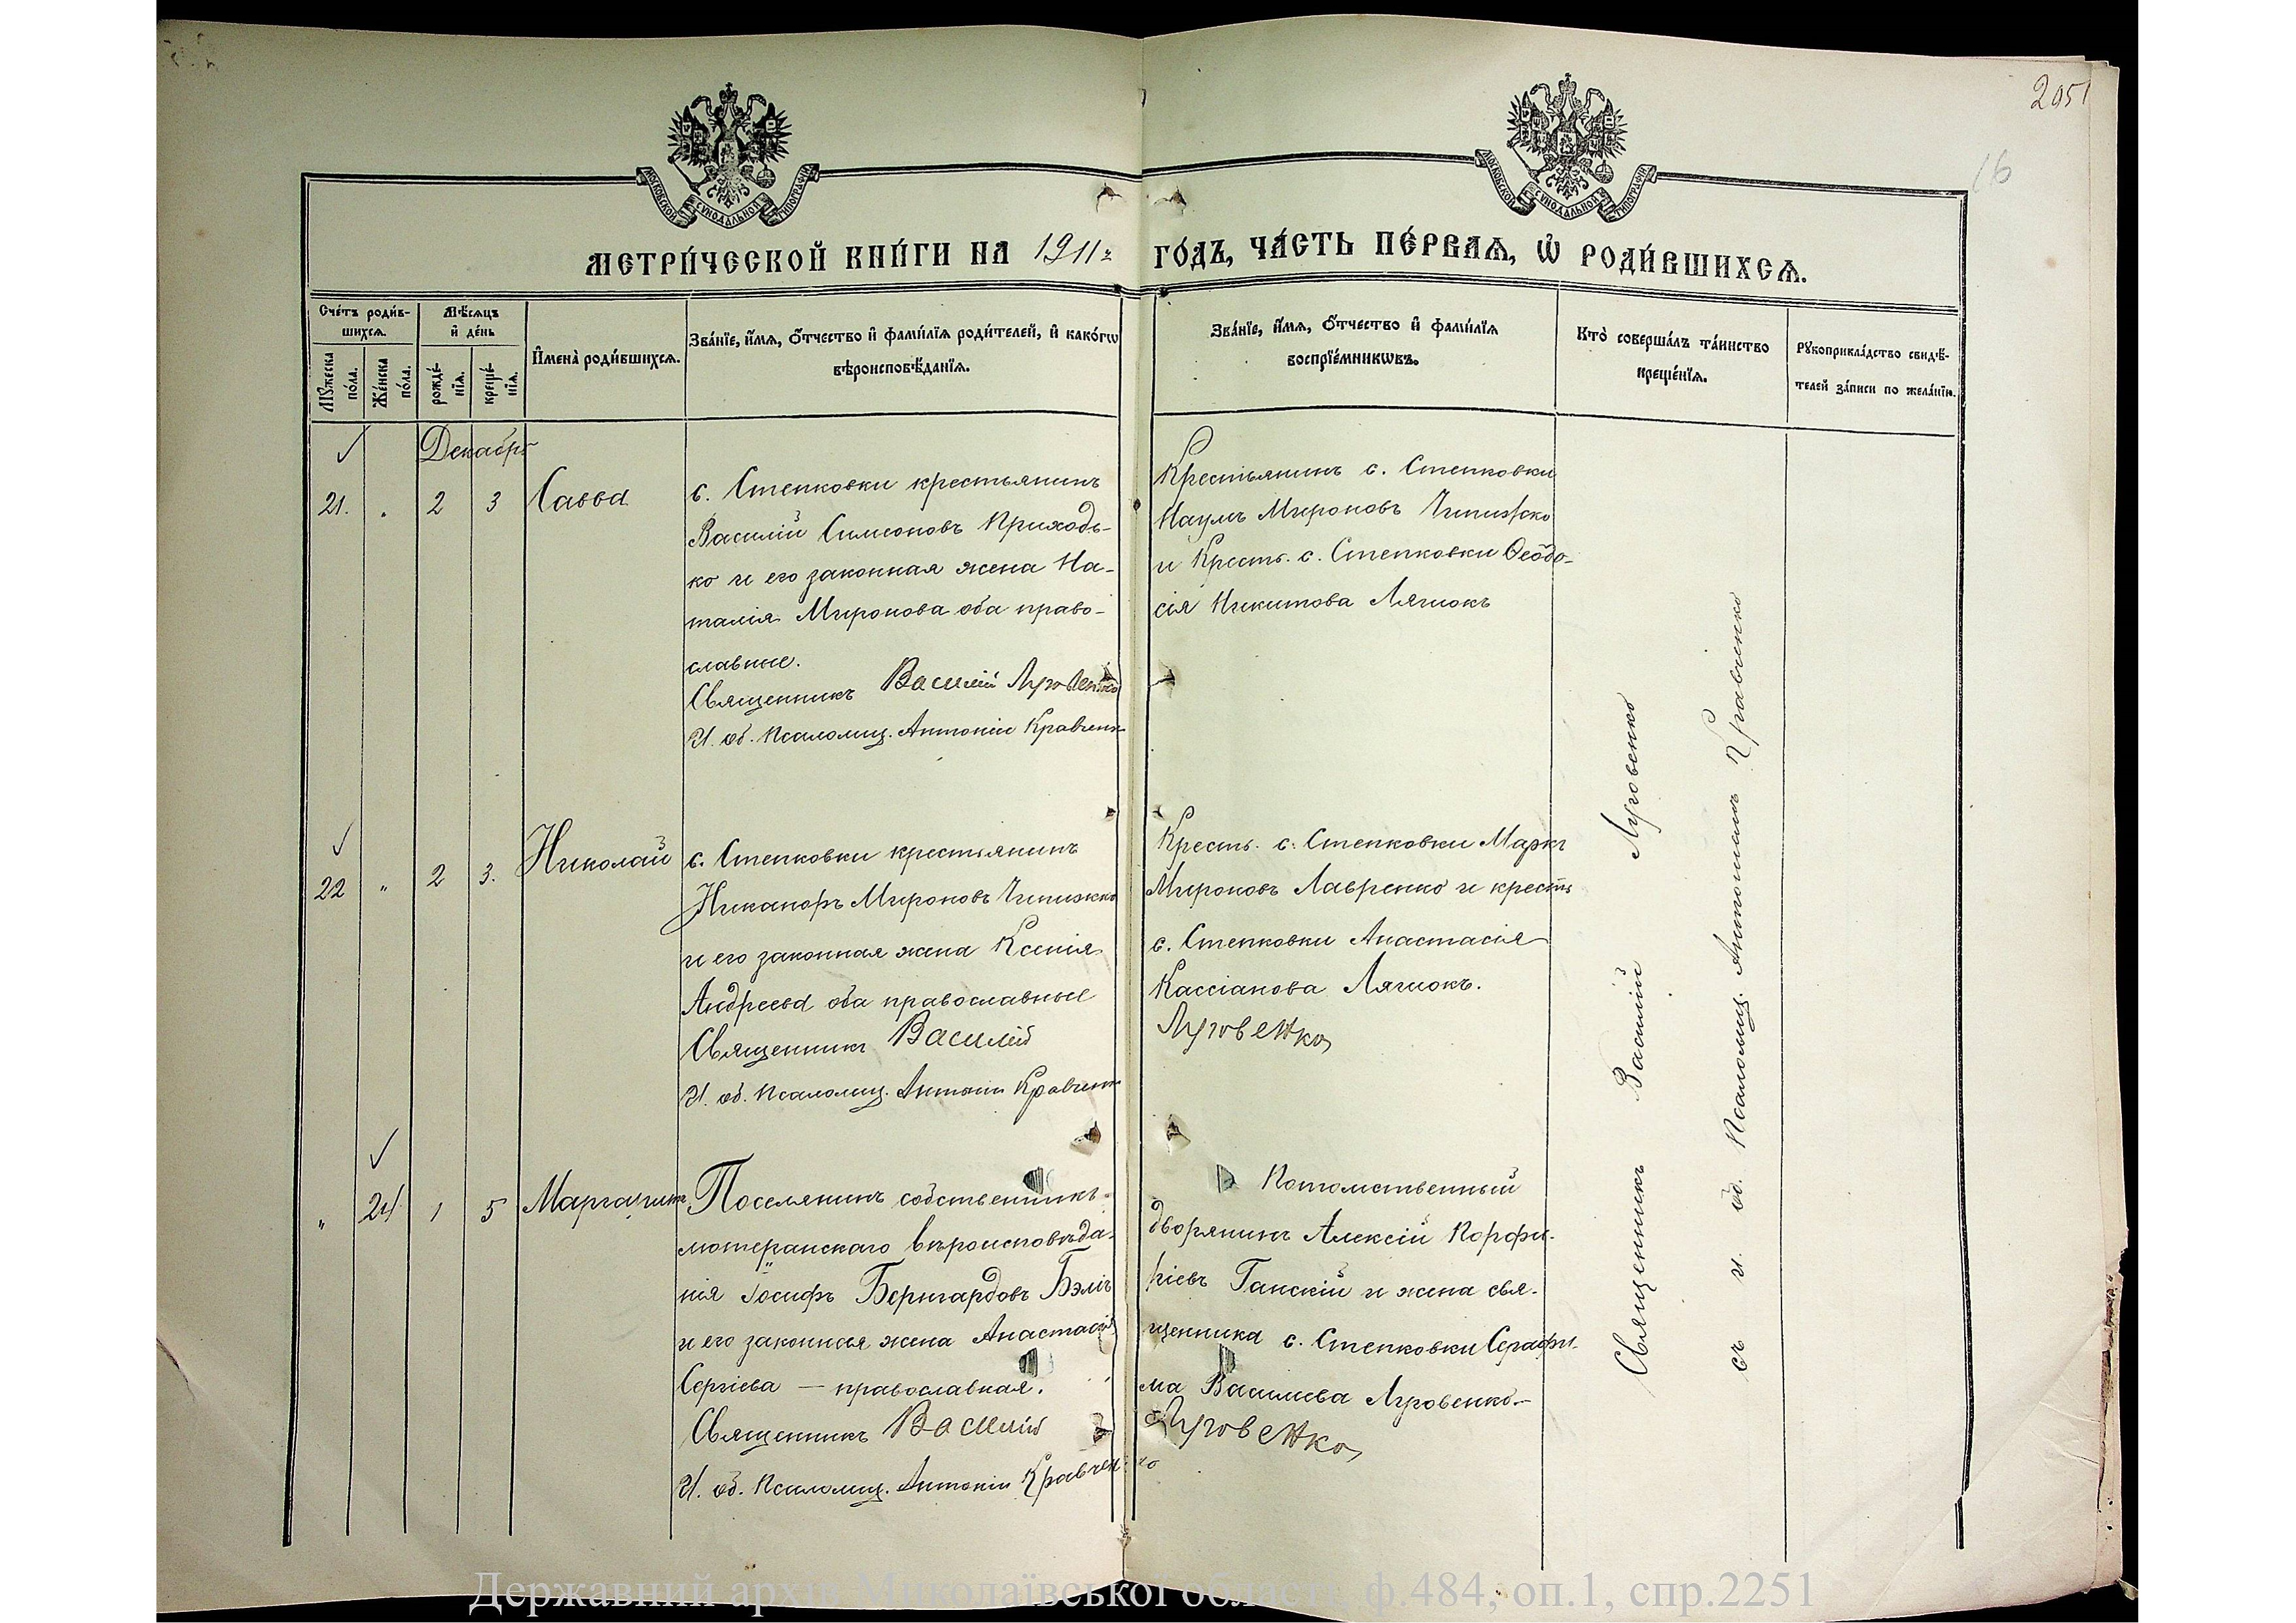 2051
16
МОСКОВСКОЙ СУНОДАЛЬНОЙ ТИПОГРАФІИ
МОСКОВСКОЙ СУНОДАЛЬНОЙ ТИПОГРАФІИ
МЕТРИ́ЧЕСКОЙ КНИ́ГИ НА 1911 г. ГО́ДЪ, ЧА́СТЬ ПЕ́РВАѦ, Ѿ РОДИ́ВШИХСѦ.
Сче́тъ роди́в-
шихсѧ.
Мꙋ́жеска по́ла.
Же́нска по́ла.
Мѣ́сѧцъ
и҆ де́нь
рожде́-
нїѧ.
креще́-
нїѧ.
И҆мена̀ роди́вшихсѧ.
Зва́нїе, и҆́мѧ, ѻ҆́тчество и҆ фами́лїѧ роди́телей, и҆ како́гѡ
вѣроисповѣ́данїѧ.
Зва́нїе, и҆́мѧ, ѻ҆́тчество и҆ фами́лїѧ
воспрїе́мникѡвъ.
Кто̀ соверша́лъ та́инство
креще́нїѧ.
Рꙋкоприкла́дство свидѣ́-
телей за́писи по жела́нїю.
Декабрь
21. " 2 3 Савва
с. Степковки крестьянинъ
Василій Симеоновъ Приходь-
ко и его законная жена На-
талія Миронова оба право-
славные.
Священникъ Василій Луговенко
И. об. Псаломщ. Антоній Кравченко
Крестьянинъ с. Степковки
Наумъ Мироновъ Чипижко
и Кресть. с. Степковки Ѳеодо-
сія Никитова Лягіокъ
22 " 2 3. Николай
с. Степковки крестьянинъ
Никаноръ Мироновъ Чипижко
и его законная жена Ксенія
Андреева оба православные
Священникъ Василій
И. об. Псаломщ. Антоній Кравченко
Кресть. с. Степковки Маркъ
Мироновъ Лавренко и кресть
с. Степковки Анастасія
Кассіанова Лягіокъ.
Луговенко
" 24 1 5 Маргарита
Поселянинъ собственникъ-
лютеранскаго вѣроисповѣда-
нія Іосифъ Бернгардовъ
и его законная жена Анастасія
Сергіева — православная.
Священникъ Василій
И. об. Псаломщ. Антоній Кравченко
Потомственный
дворянинъ Алексій Порфи-
ріевъ Ганскій и жена свя-
щенника с. Степковки Серафи-
ма Василіева Луговенко.
Луговенко
Священникъ Василій Луговенко
съ и. об. Псаломщ. Антоніемъ Кравченко
Державний архів Миколаївської області, ф.484, оп.1, спр.2251